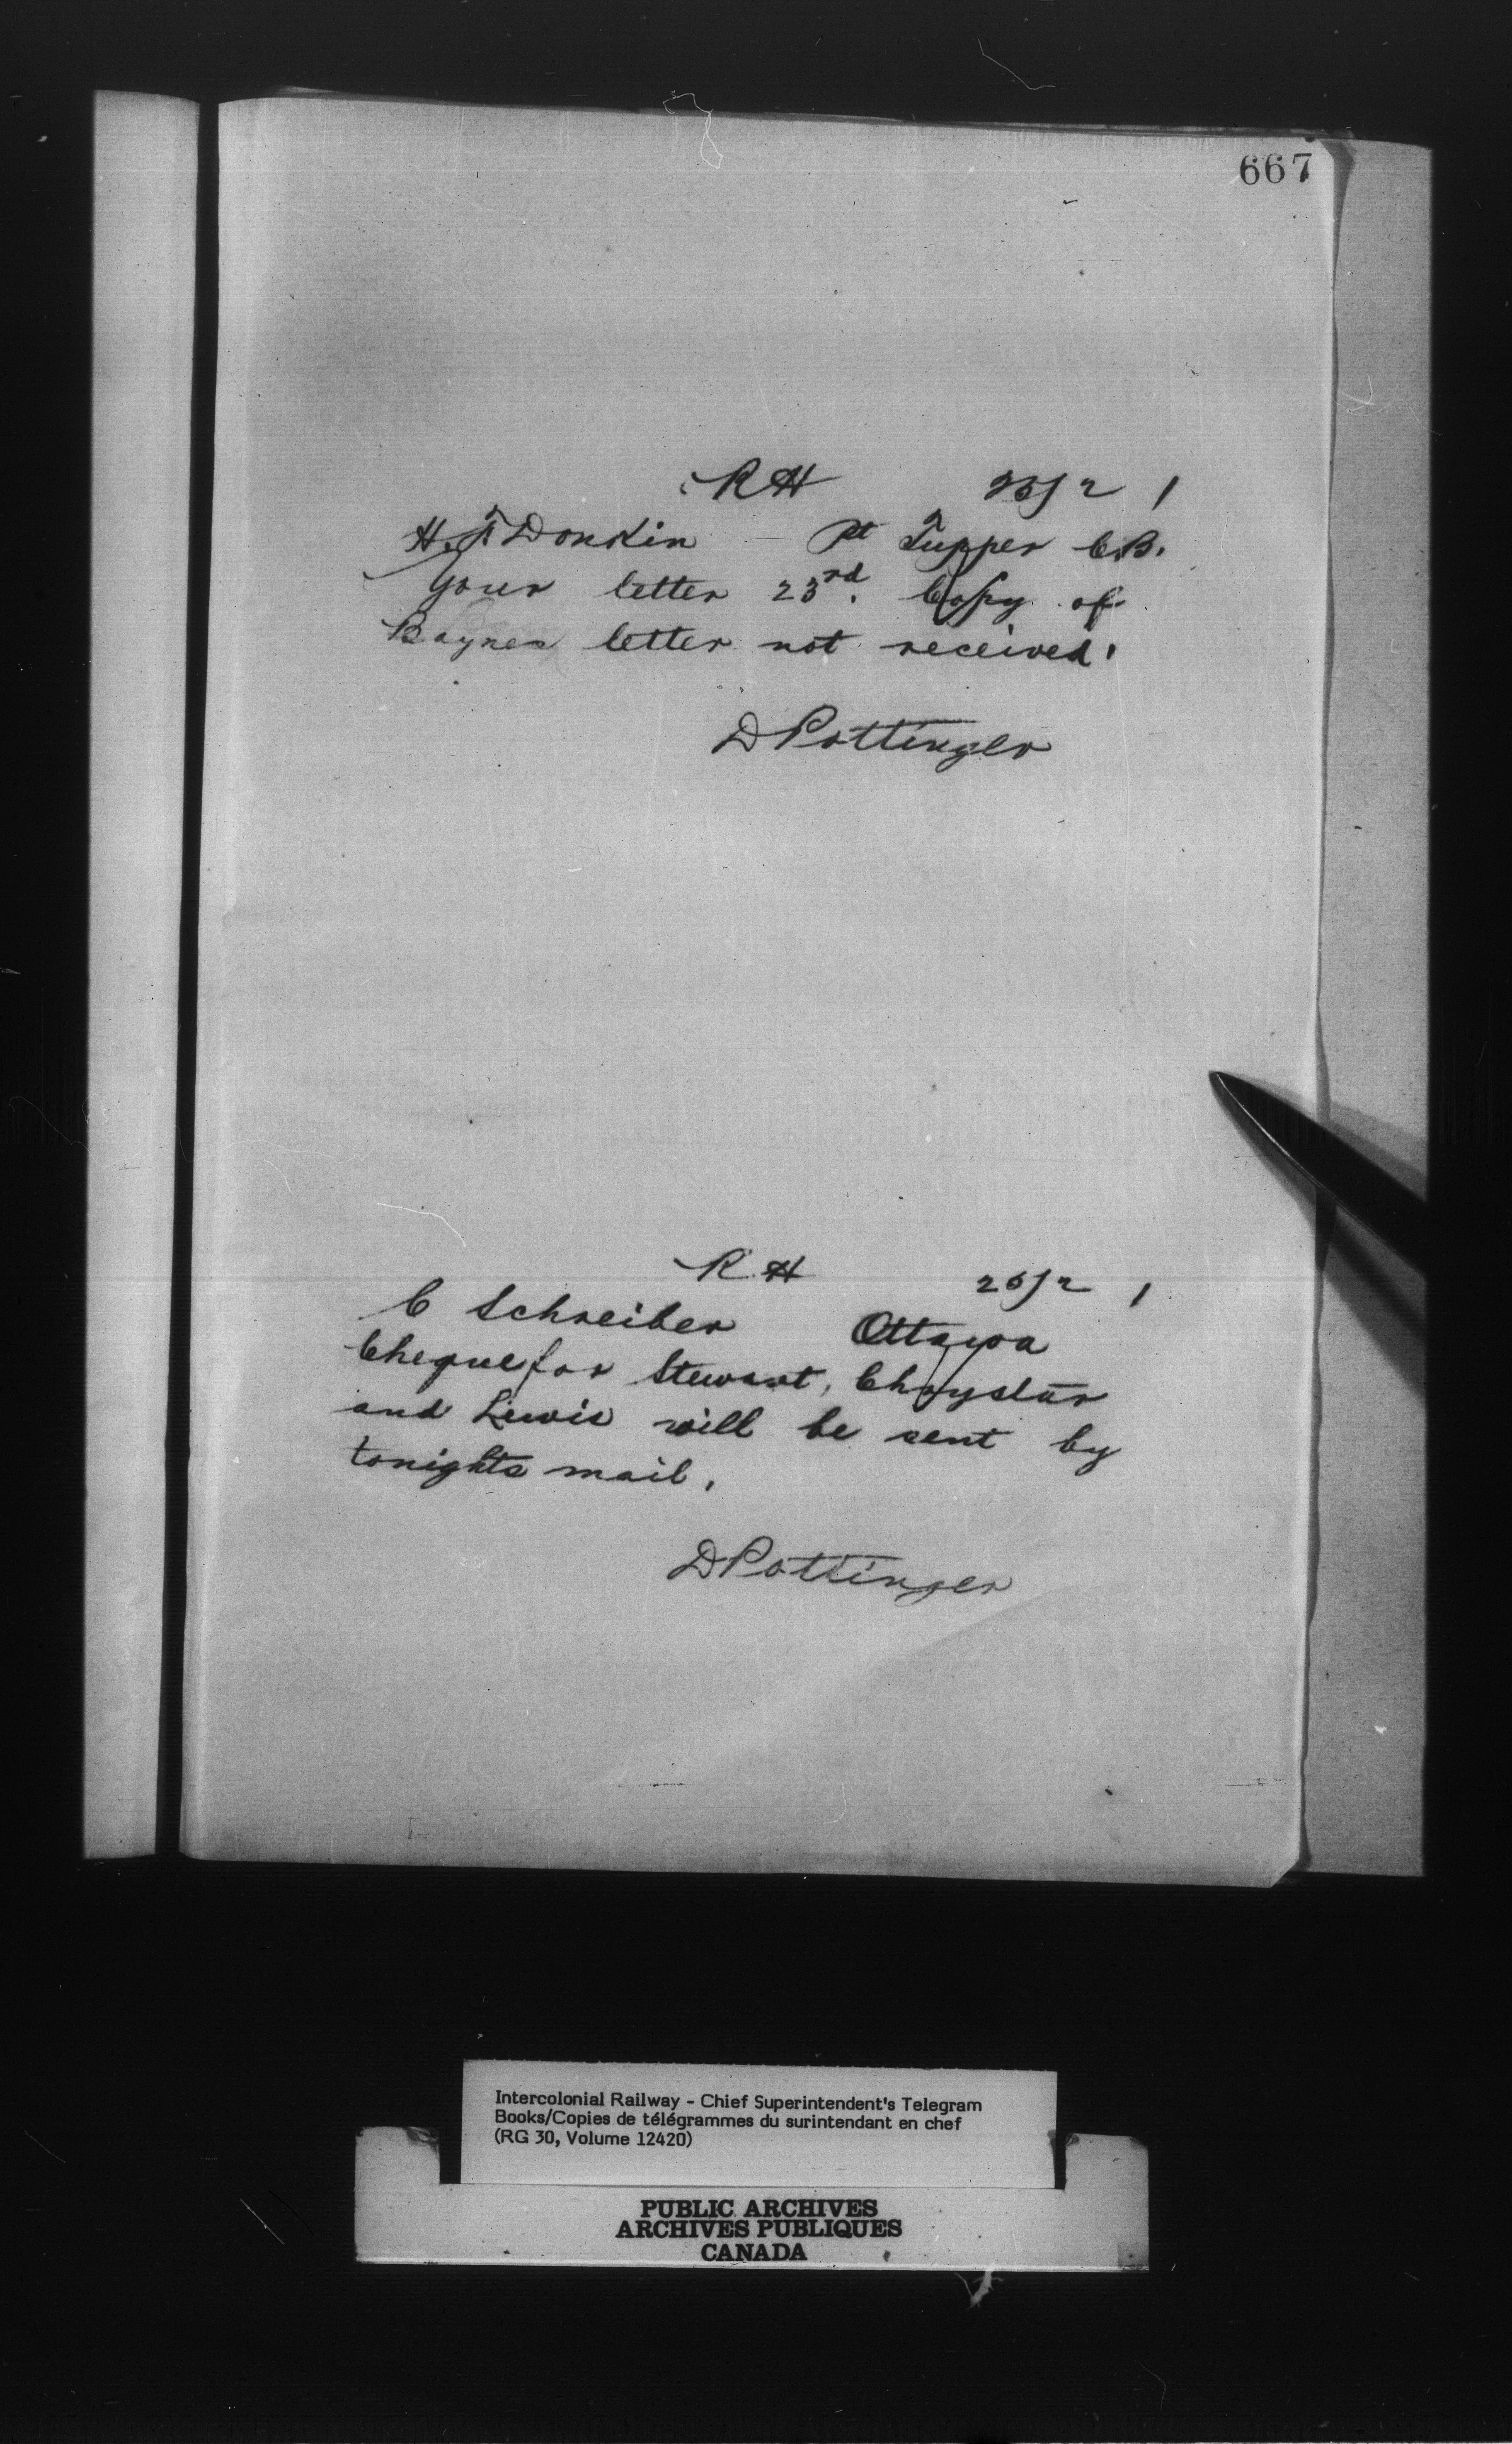 667
RH 26/2 1
H.F. Donkin Pt Tupper C.B.
Your letter 23rd. Copy of
Baynes letter not received.
D Pottinger
RH 26/2 1
C Schreiber Ottawa
Cheque for Stewart, Chrysler
and Lewis will be sent by
tonights mail.
D Pottinger
Intercolonial Railway - Chief Superintendent's Telegram
Books/Copies de télégrammes du surintendant en chef
(RG 30, Volume 12420)
PUBLIC ARCHIVES
ARCHIVES PUBLIQUES
CANADA